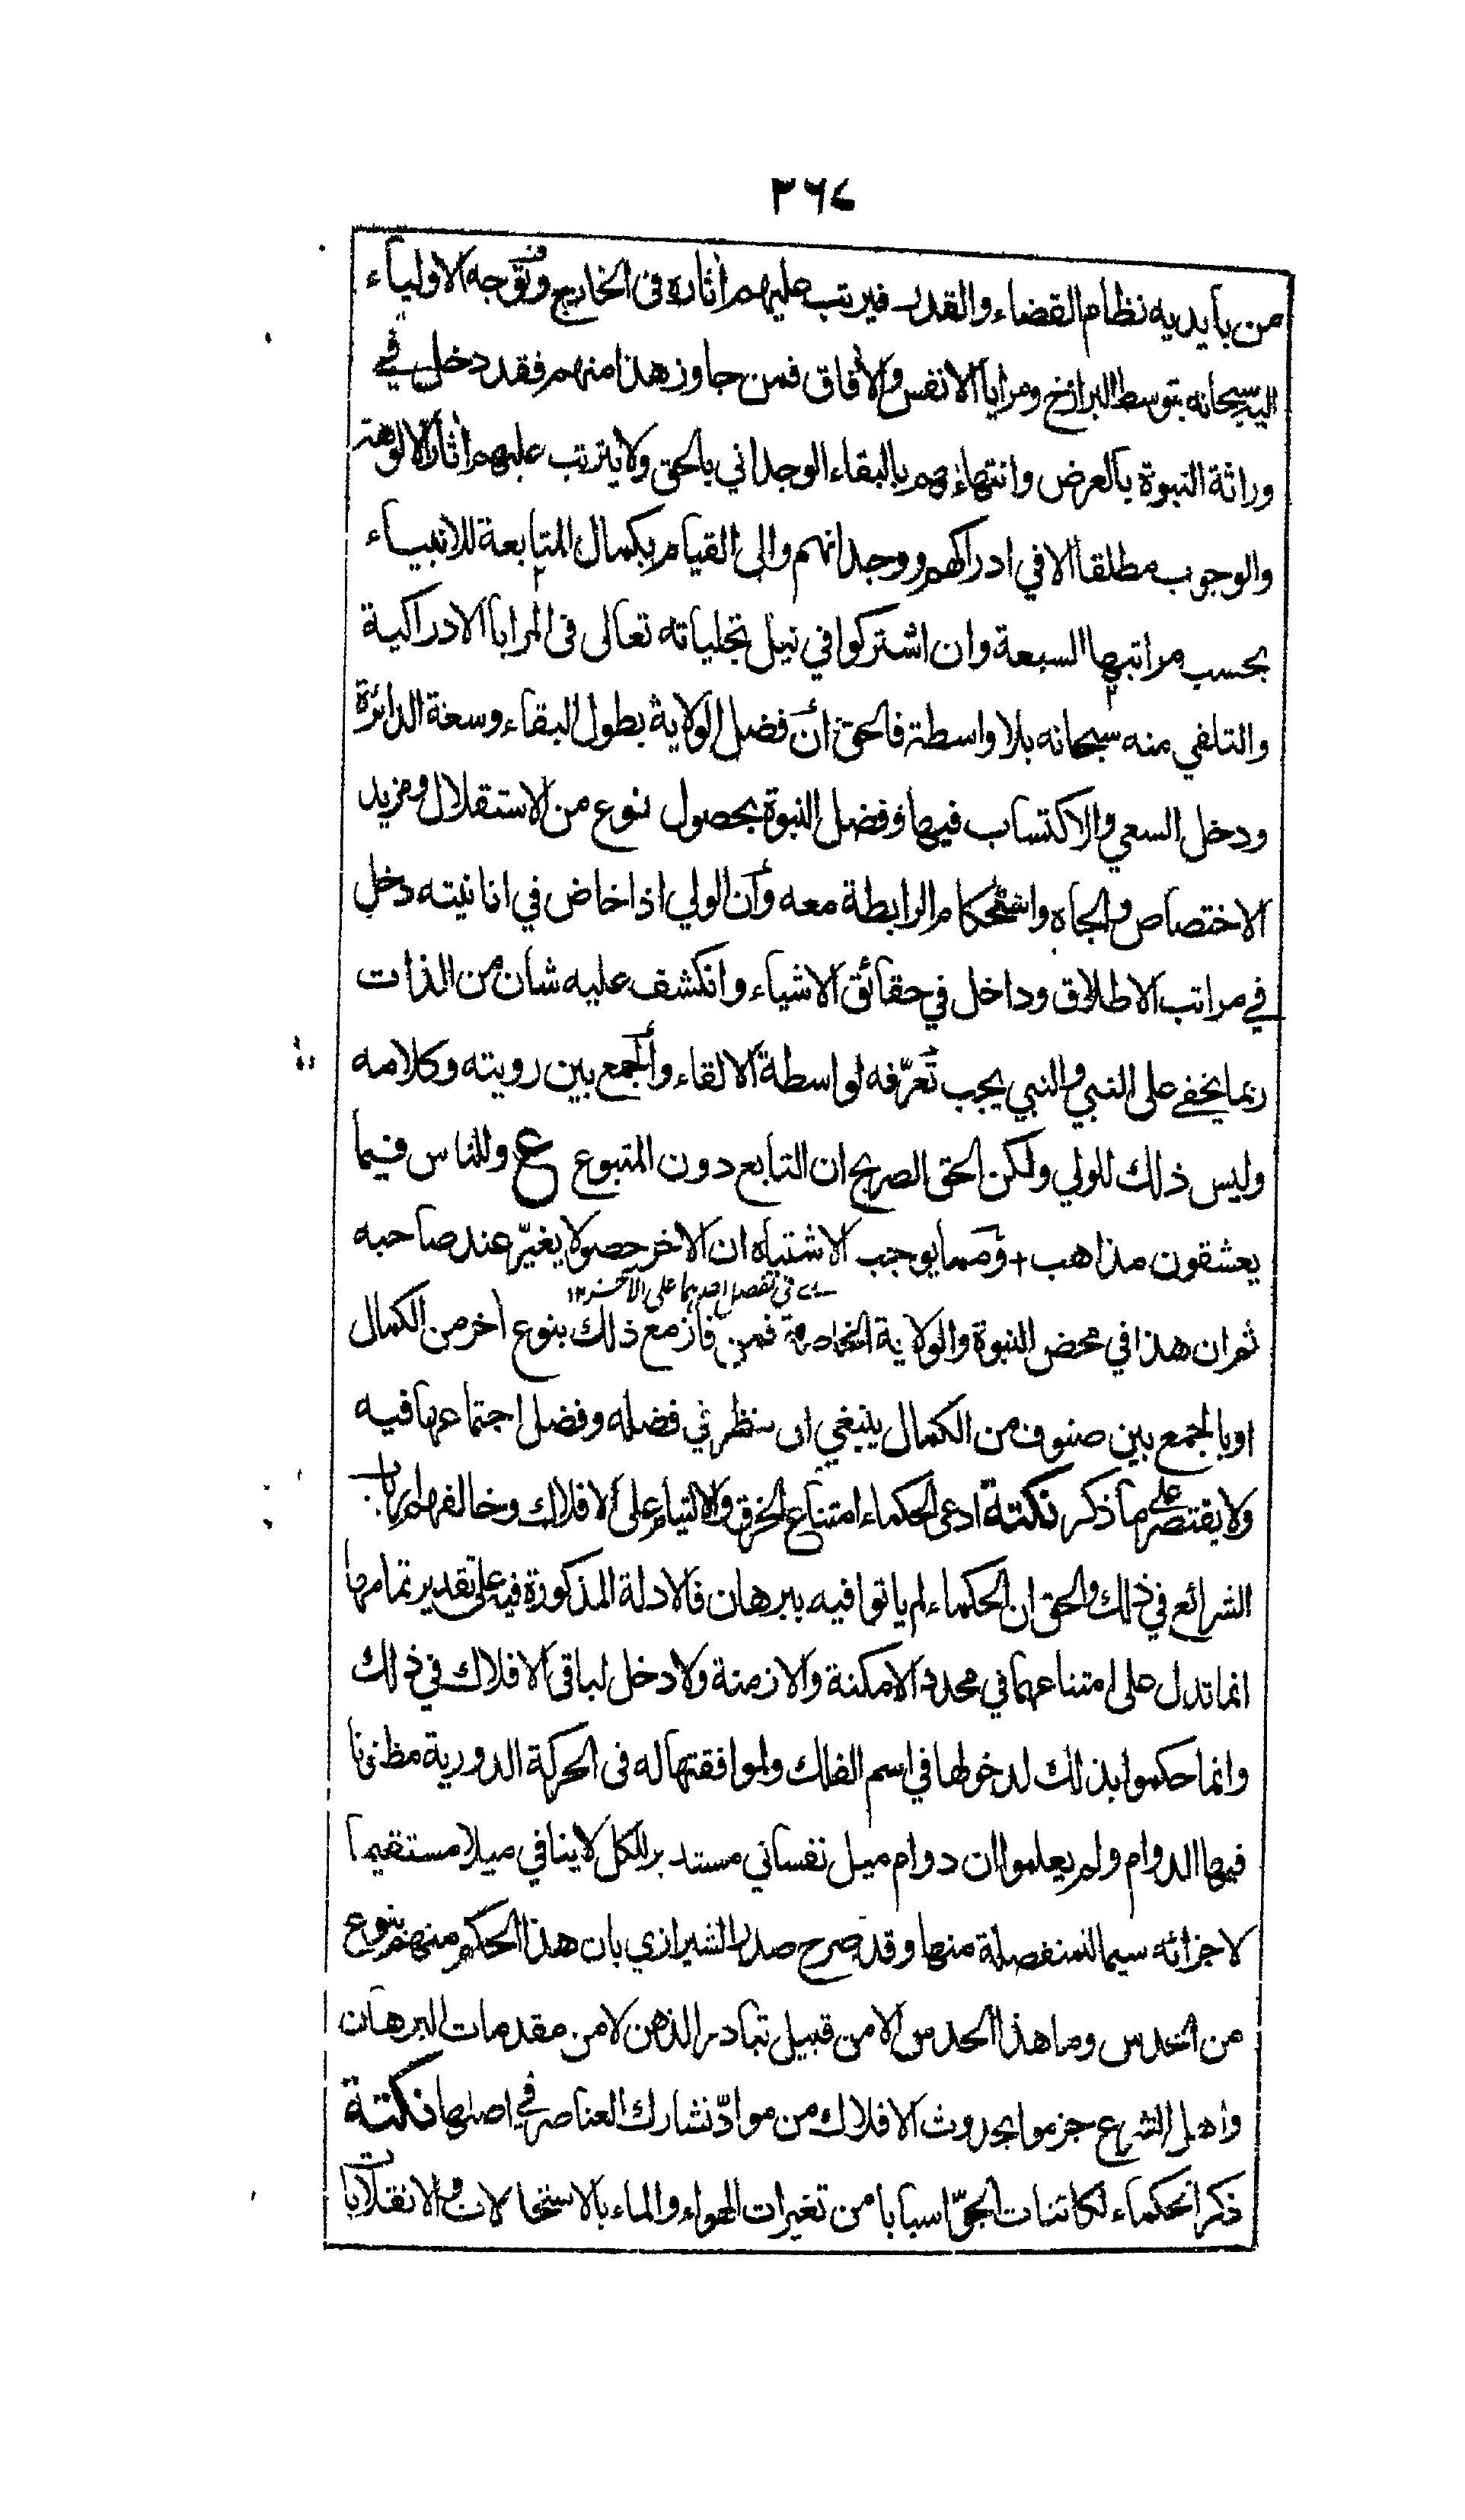 ٣٦٤
من بايديه نظام القضاء والقدر فيرتب عليهم أثاره فى الخارج وتوجه الاولياء
اليه سبحانه بتوسط البرازخ ومرايا الانفس والأفاق فمن جاوز هذا منهم فقد دخل في
وراثة النبوة بالعرض وانتهاؤهم بالبقاء الوجداني بالحق ولا يترتب عليهم أثار الالوهة
والوجوب مطلقا الا في ادراكهم ووجدانهم والى القيام بكمال المتابعة للانبياء
بحسب مراتبها السبعة وان اشتركوا في نيل تجلياته تعالى فى المرايا الادراكية
والتلقي منه سبحانه بلا واسطة فالحق أن فضل الولاية بطول البقاء وسعة الدائرة
ودخل السعي والاكتساب فيها وفضل النبوة بحصول نوع من الاستقلال ومزيد
الاختصاص والجاه واستحكام الرابطة معه وأن الولي اذا خاض في انانيته دخل
في مراتب الاطلاق وداخل في حقائق الاشياء وانكشف عليه شان من الذات
ربما يخفى على النبي والنبي يجب تعرّفه لواسطة الالقاء والجمع بين رويته وكلامه
وليس ذلك للولي ولكن الحق الصريح ان التابع دون المتبوع ع وللناس فيما
يعشقون مذاهب + ومما يوجب الاشتباه ان الاخر حصولا يغيّر عند صاحبه
ے في تفضيل احدهما على الآخر ١٢
ثم ان هذا في محض النبوة والولاية الخاصة فمن فاز مع ذلك بنوع أخر من الكمال
او بالجمع بين صنوف من الكمال ينبغي ان ينظر في فضله وفضل اجتماعها فيه
ولا يقتصر على ما ذكر نكتة ادعى الحكماء امتناع الخرق والالتيام على الافلاك وخالفهم ارباب
الشرائع في ذلك والحق ان الحكماء لم ياتوا فيه ببرهان فالادلة المذكورة فيه على تقدير تمامها
انما تدل على امتناعهما في محدد الامكنة والازمنة ولا دخل لباقى الافلاك في ذلك
وانما حكموا بذلك لدخولها في اسم الفلك ولموافقتها له فى الحركة الدورية مظنونا
فيها الدوام ولم يعلموا ان دوام ميل نفساني مستدير للكل لا ينافي ميلا مستقيما
لاجزائه سيما المنفصلة منها وقد صرح صدر الشيرازي بان هذا الحكم منهم بنوع
من الحدس وما هذا الحدس الا من قبيل تبادر الذهن لا من مقدمات البرهان
واهل الشرع جزموا بحدوث الافلاك من موادّ تشارك العناصر في اصلها نكتة
ذكر الحكماء لكائنات الجوّ اسبابا من تغيرات الهواء والماء بالاستحالات والانقلابات